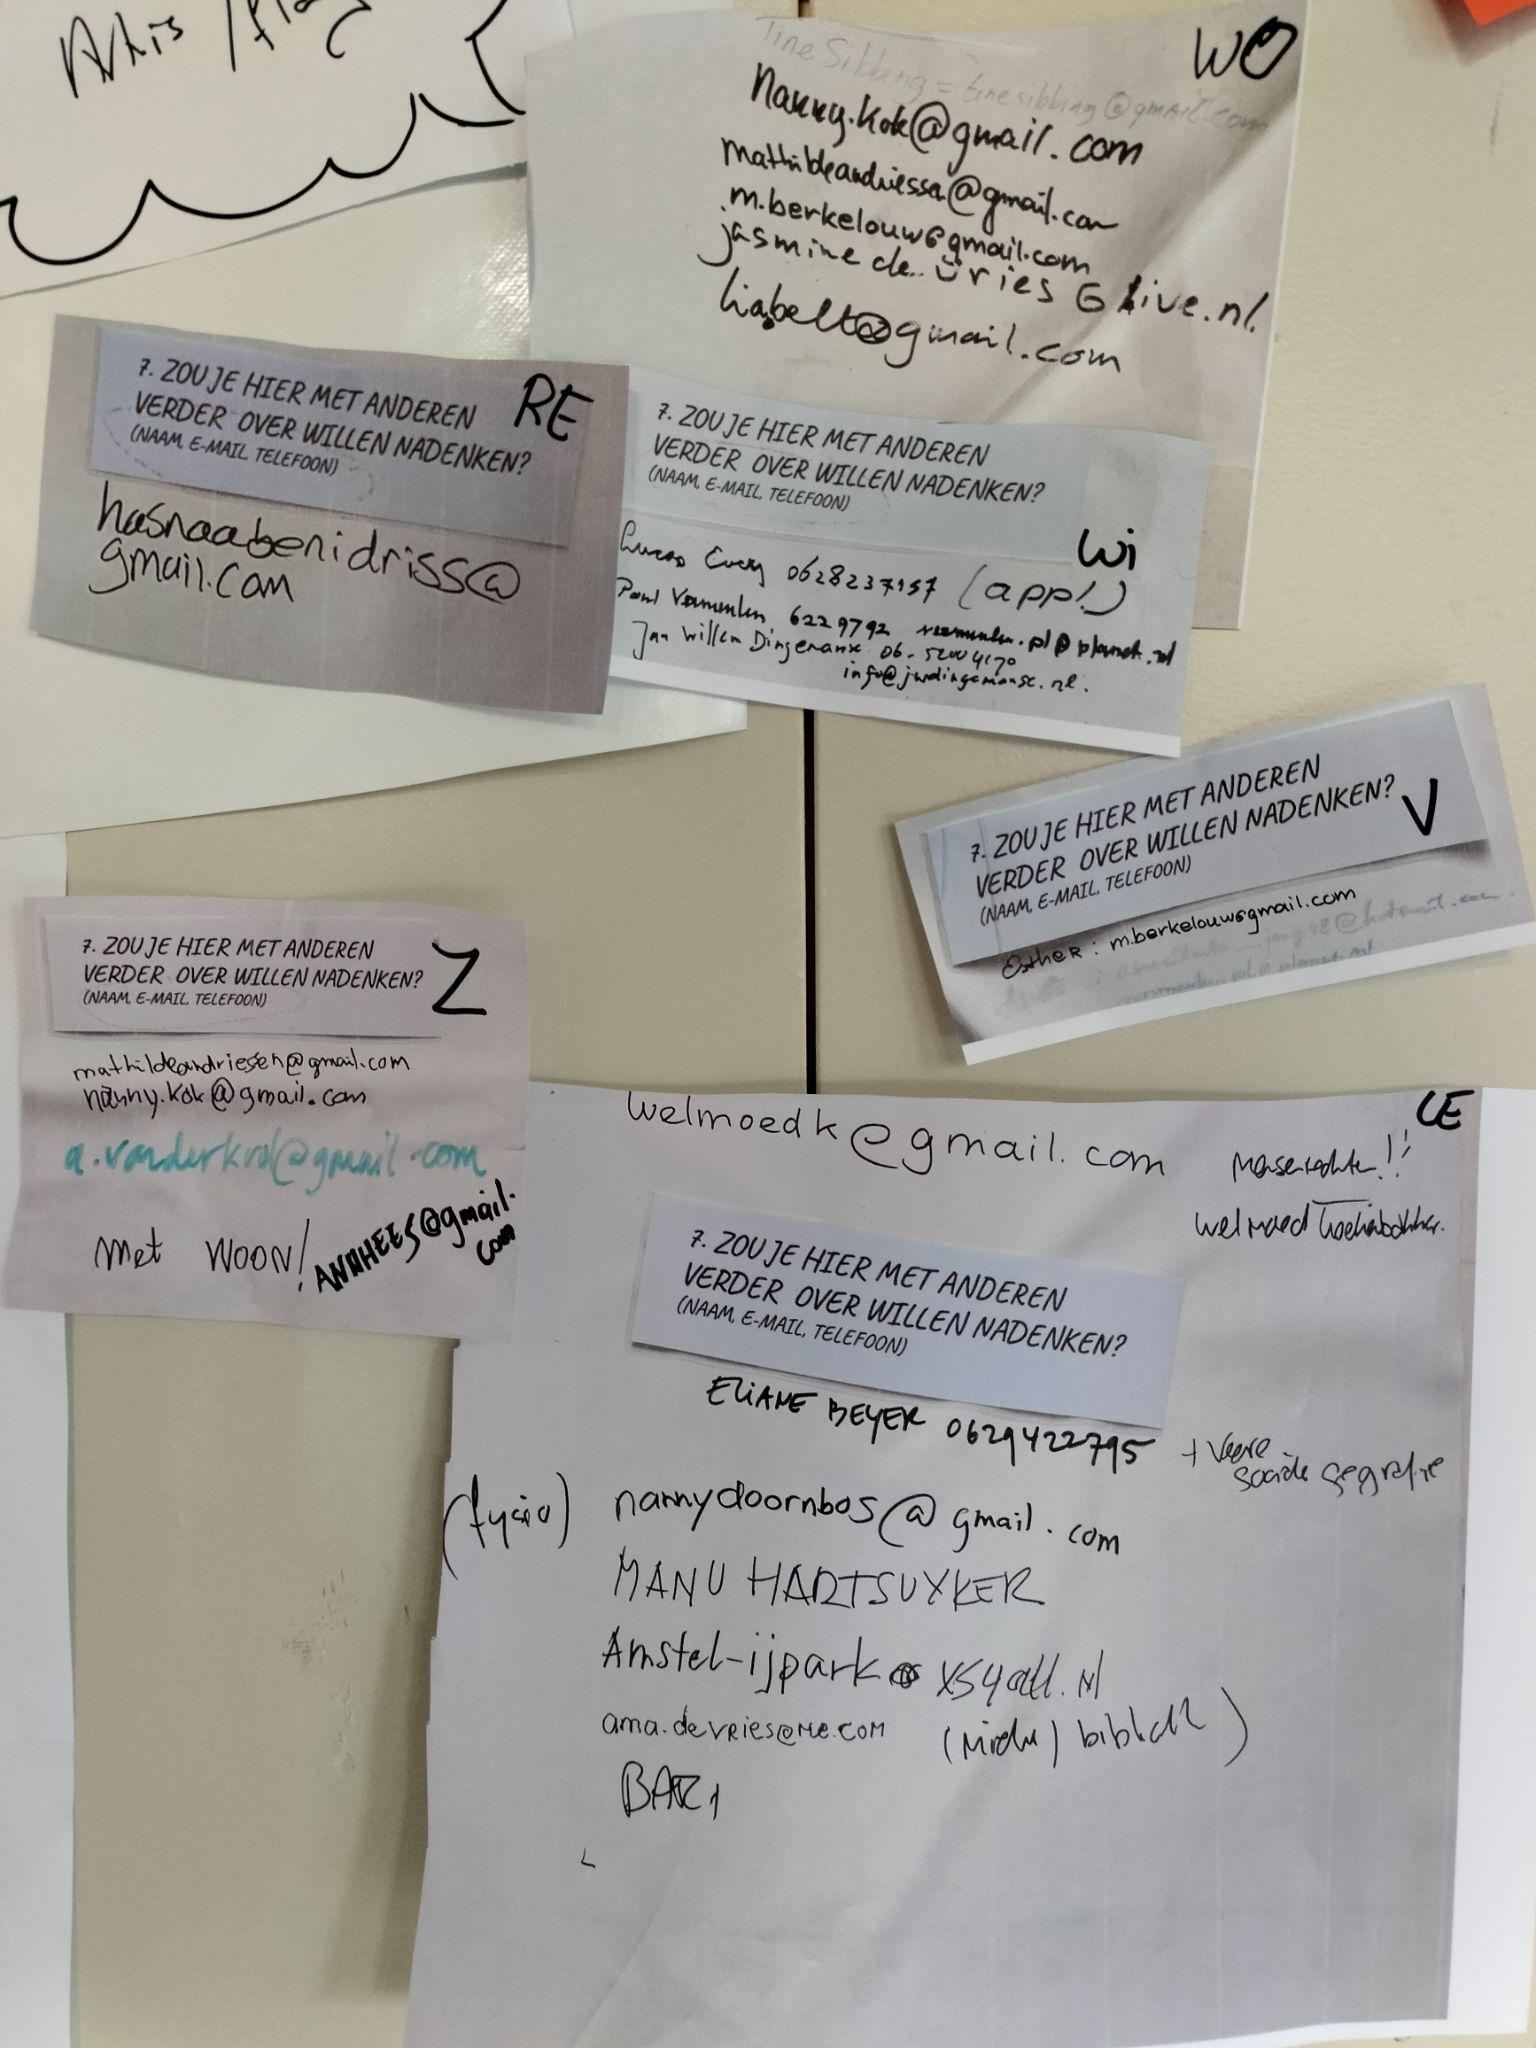 WO
Tine Sibbing = tinesibbing@gmail.com
Nanny.kok@gmail.com
m.berkelouw@gmail.com
jasmine de vries @ live.nl.
liabelt@gmail.com
7. ZOU JE HIER MET ANDEREN
VERDER OVER WILLEN NADENKEN?
(NAAM, E-MAIL, TELEFOON)
RE
hasnaabenidriss@
gmail.com
7. ZOU JE HIER MET ANDEREN
VERDER OVER WILLEN NADENKEN?
(NAAM, E-MAIL, TELEFOON)
Wi
Lucas 0628237157 (app!)
Paul Vermeulen 6229792
Jan Willem Dingemanse 06-
info@jwdingemanse.nl.
7. ZOU JE HIER MET ANDEREN
VERDER OVER WILLEN NADENKEN?
(NAAM, E-MAIL, TELEFOON)
V
Esther: m.berkelouw@gmail.com
7. ZOU JE HIER MET ANDEREN
VERDER OVER WILLEN NADENKEN?
(NAAM, E-MAIL, TELEFOON)
Z
mathildeandriesen@gmail.com
nanny.kok@gmail.com
a.vanderkrol@gmail.com
Met WOON!
ANRHEES@gmail.
com
welmoedk@gmail.com
LE
welmoed
7. ZOU JE HIER MET ANDEREN
VERDER OVER WILLEN NADENKEN?
(NAAM, E-MAIL, TELEFOON)
ELIANE BEYER 0629422795
nannydoornbos@gmail.com
MANU HARTSUYKER
Amstel-ijpark@xs4all.nl
ama.devries@me.com